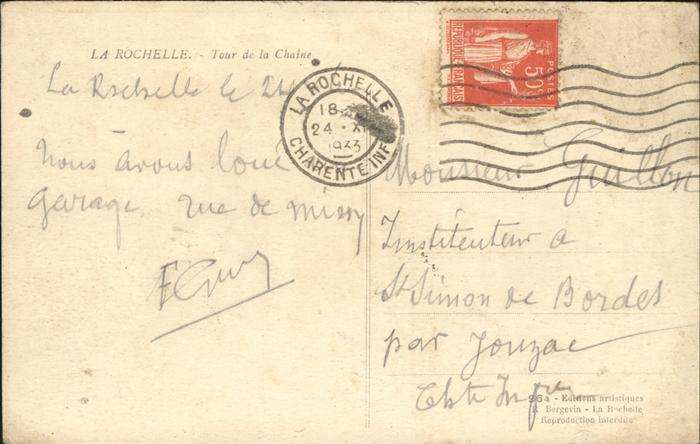 LA ROCHELLE. - Tour de la Chaîne
La Rochelle le 24
Nous avons loué
garage, rue de missy
LA ROCHELLE
18
24 - XI
1933
CHARENTE INFRE
POSTES
50c
REPUBLIQUE FRANÇAISE
Monsieur Guillon
Instituteur à
St Simon de Bordes
par Jonzac
Chte Infre
964 - Editions artistiques
R. Bergevin - La Rochelle
Reproduction interdite